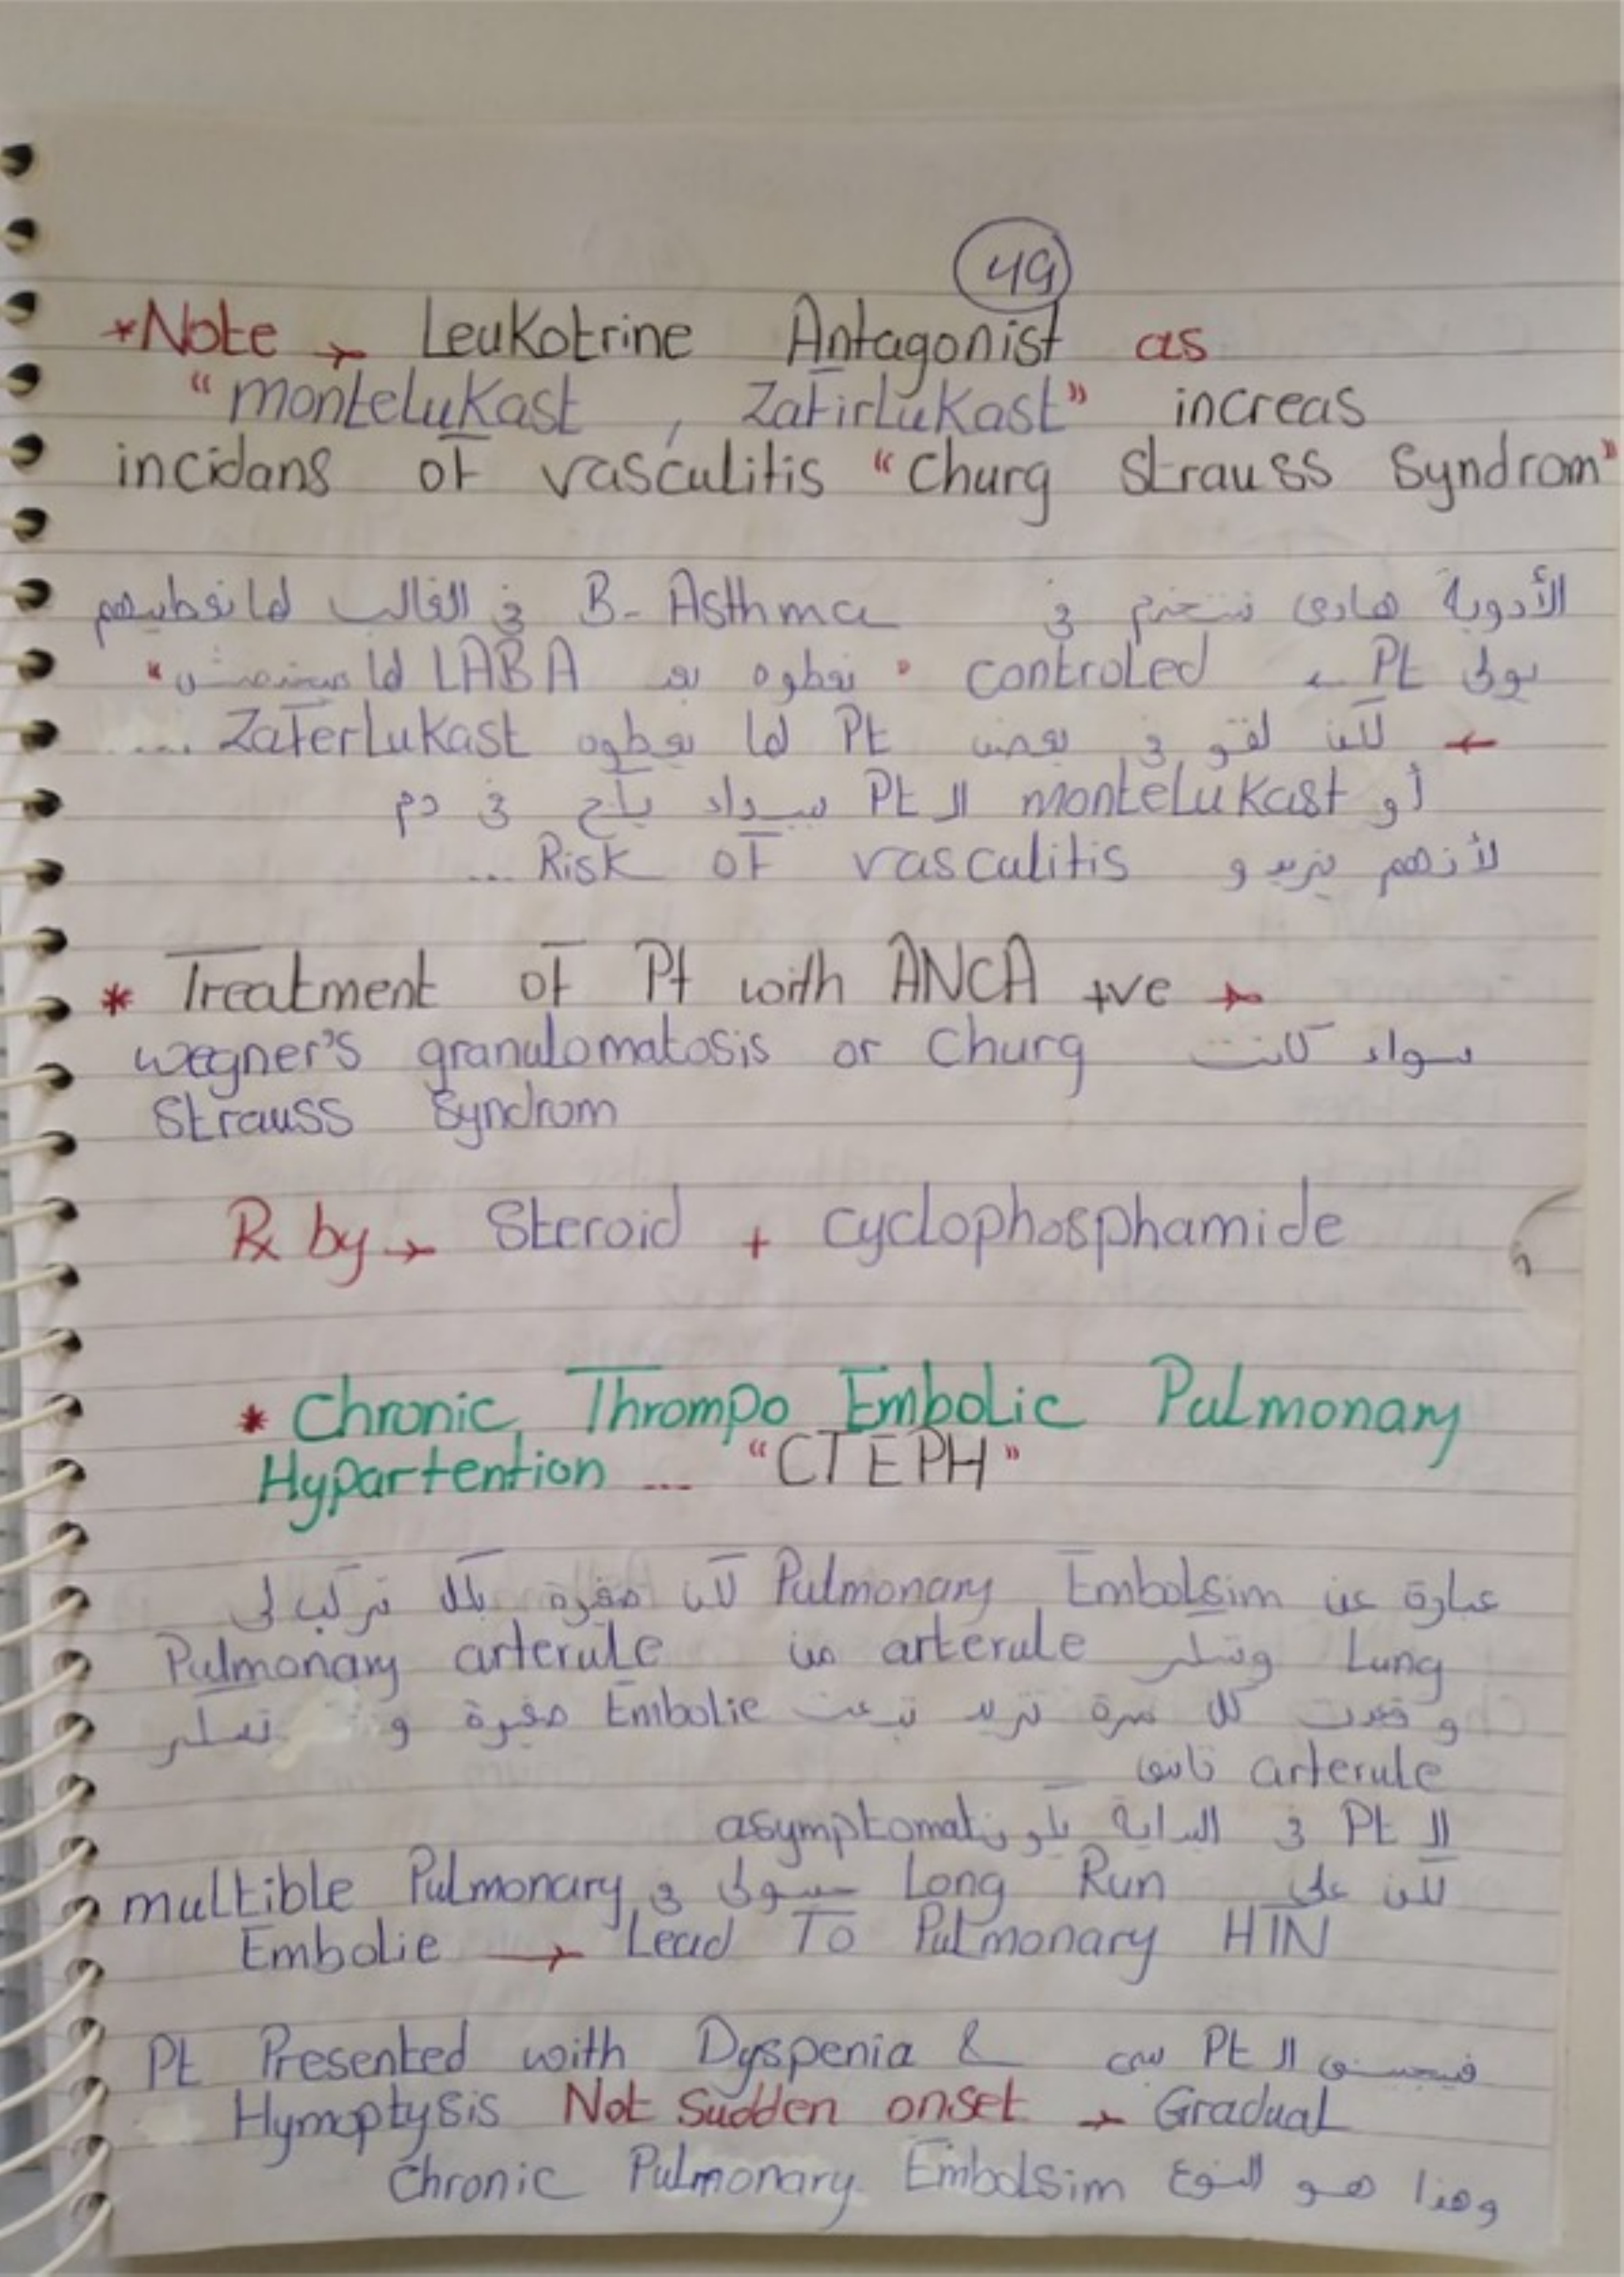 49
*Note → Leukotrine Antagonist as
"montelukast , Zafirlukast" increas
incidans of vasculitis "Churg Strauss Syndrom"
الأدوية هادى تستخدم فى B- Asthma فى الغالب لما نعطيهم
Pt controled " نعطوه LABA لما
← لكن لقو فى بعض Pt لما يعطوه Zaferlukast ....
أو montelukast الـ Pt فى دم
لأنهم يزيدو Risk of vasculitis ...
* Treatment of Pt with ANCA +ve →
سواء كانت wegner's granulomatosis or Churg
Strauss Syndrom
Rx by → Steroid + cyclophosphamide
* Chronic Thrompo Embolic Pulmonary
Hypartention ... "CTEPH"
عبارة عن Pulmonary Embolsim لكن صغيرة تركب لى
Lung وتسكر arterule من Pulmonary arterule
و قعدت كل مرة تزيد تبعت Embolie صغيرة و تسكر
arterule تانى
الـ Pt فى البداية asymptomat
لكن على Long Run فى multible Pulmonary
Embolie → Lead To Pulmonary HTN
الـ Pt Pt Presented with Dyspenia &
Hymoptysis Not Sudden onset → Gradual
وهذا هو النوع Chronic Pulmonary Embolsim